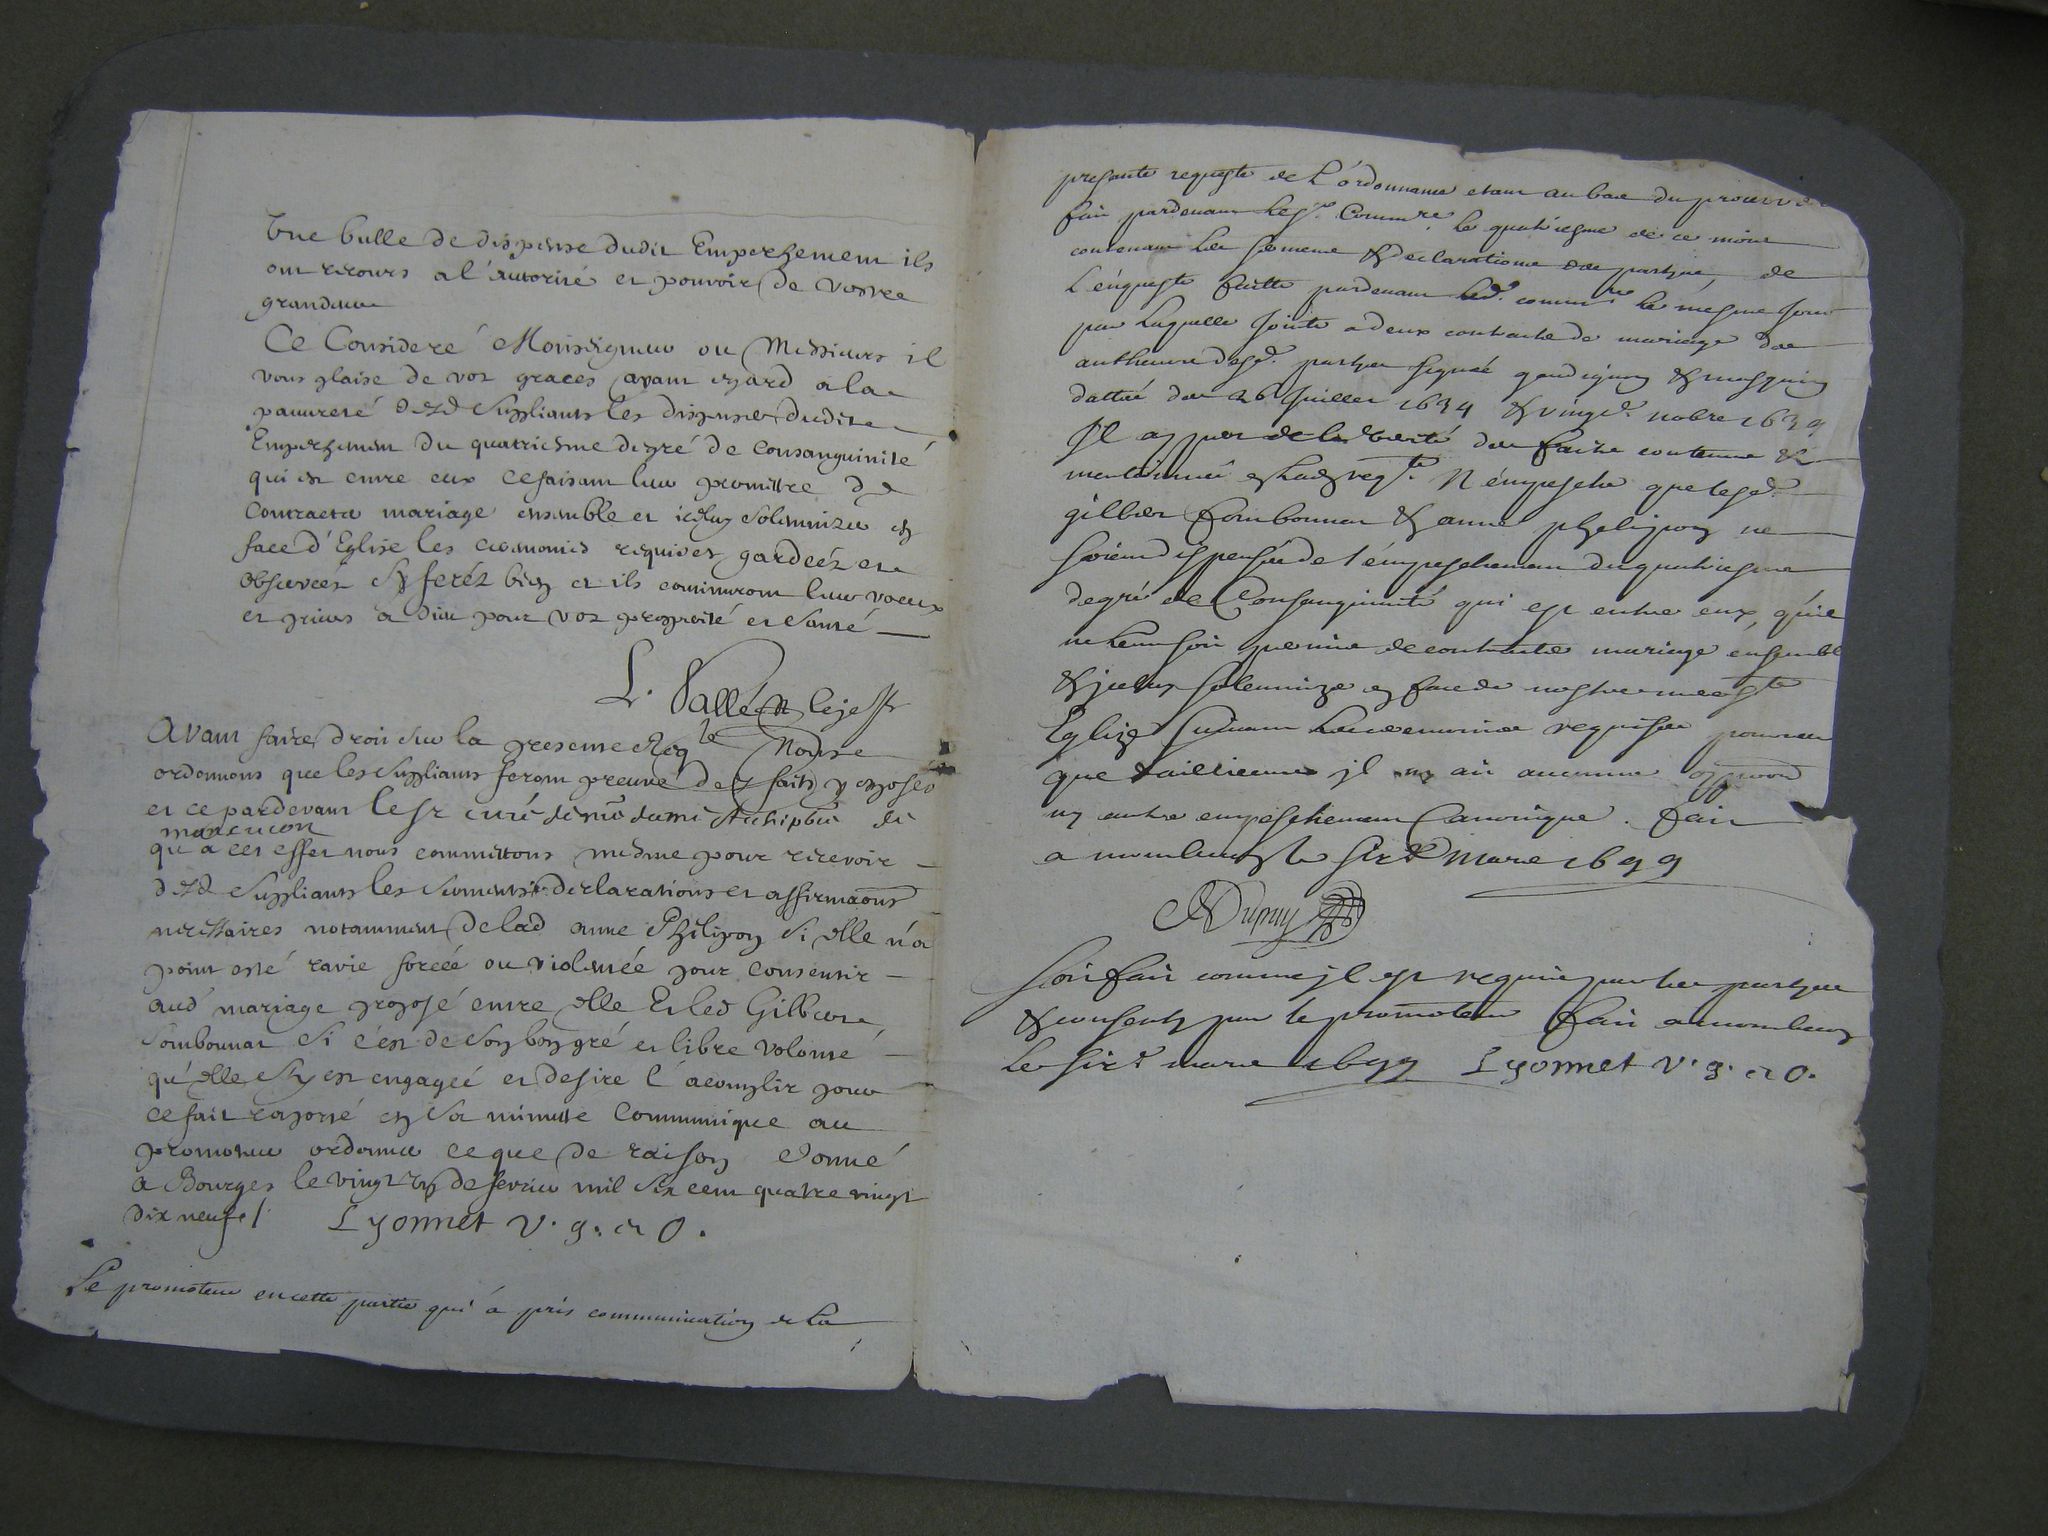 Une bulle de dispense dudit Empeschement ils
ont recours a l'Autorité et pouvoir de vostre
grandeur
Ce Consideré Monseigneur ou Messieurs il
vous plaise de vos graces ayant egard a la
pauvreté desd Suppliants les dispenser dudit
Empeschement du quatriesme degré de Consanguinité
qui est entre eux ce faisant leur promettre de
Contracter mariage ensemble et iceluy Solemnizer en
face d'Eglise les ceremonies requises gardeéz et
Observeéz Sy feréz bien et ils continuront leur voeux
et prieres a Dieu pour vos prosperité et Santé
L. Vallet
Avant faire droit Sur la presente Reqte Nous
ordonnons que les Suppliants feront preuve des faits y exposés
et ce pardevant le Sr curé de Archiprêtre de
montlucon
qu'a cet effet nous committons mesme pour recevoir
desd Suppliants les serments declarations et affirmaons
necessaires notamment de lad anne Philipon Si elle n'a
point esté ravie forcéé ou violentéé pour Consentir
aud mariage proposé entre elle Et led Gilbert
Fombonnat Si c'est de Son bon gré et libre volonté
qu'elle S'y est engageé et desire l'acomplir pour
ce fait raporté en Sa minutte Communique au
promoteur ordonner ce que de raison Donné
a Bourges le vingt de fevrier mil Six cent quatre vingt
dix neuf Lyonnet v. g. et O.
Le promoteur en cette partie qui a pris communication de la
presante requeste de L'ordonnance etant au bas du procez
fait pardevant led. Sr Commre. le quatriesme de ce mois
contenant les serment & declarations des partyes, de
L'enqueste faitte pardevant led. commre. le mesme jour
par laquelle jointe a deux contracts de mariage des
autheurs desd. partyes signéé &
dattéé des 26 juillet 1634 & vingt nobre 1639
Il apper de la verité des faits contenus &
mentionnés en lad reqte. N'empesche que lesd.
gilbert fombonnat & anne phelipon ne
soient dispensés de l'empeschement du quatriesme
degré de Consanguinité qui est entre eux, qu'il
ne leur soit permis de contracter mariage ensemble
& iceluy solemnizer en face de nostre mere Ste
Eglize suivant les ceremonies requises pourveu
que d'aillieurs il ny ait aucunne oppoon
ny autre empeschement Canonique. fait
a montlucon le six mars 1699
Dupuy
Soit fait comme il est requis par les partyes
& consenty par le promoteur fait a montlucon
le six mars 1699 Lyonnet v. g. et O.